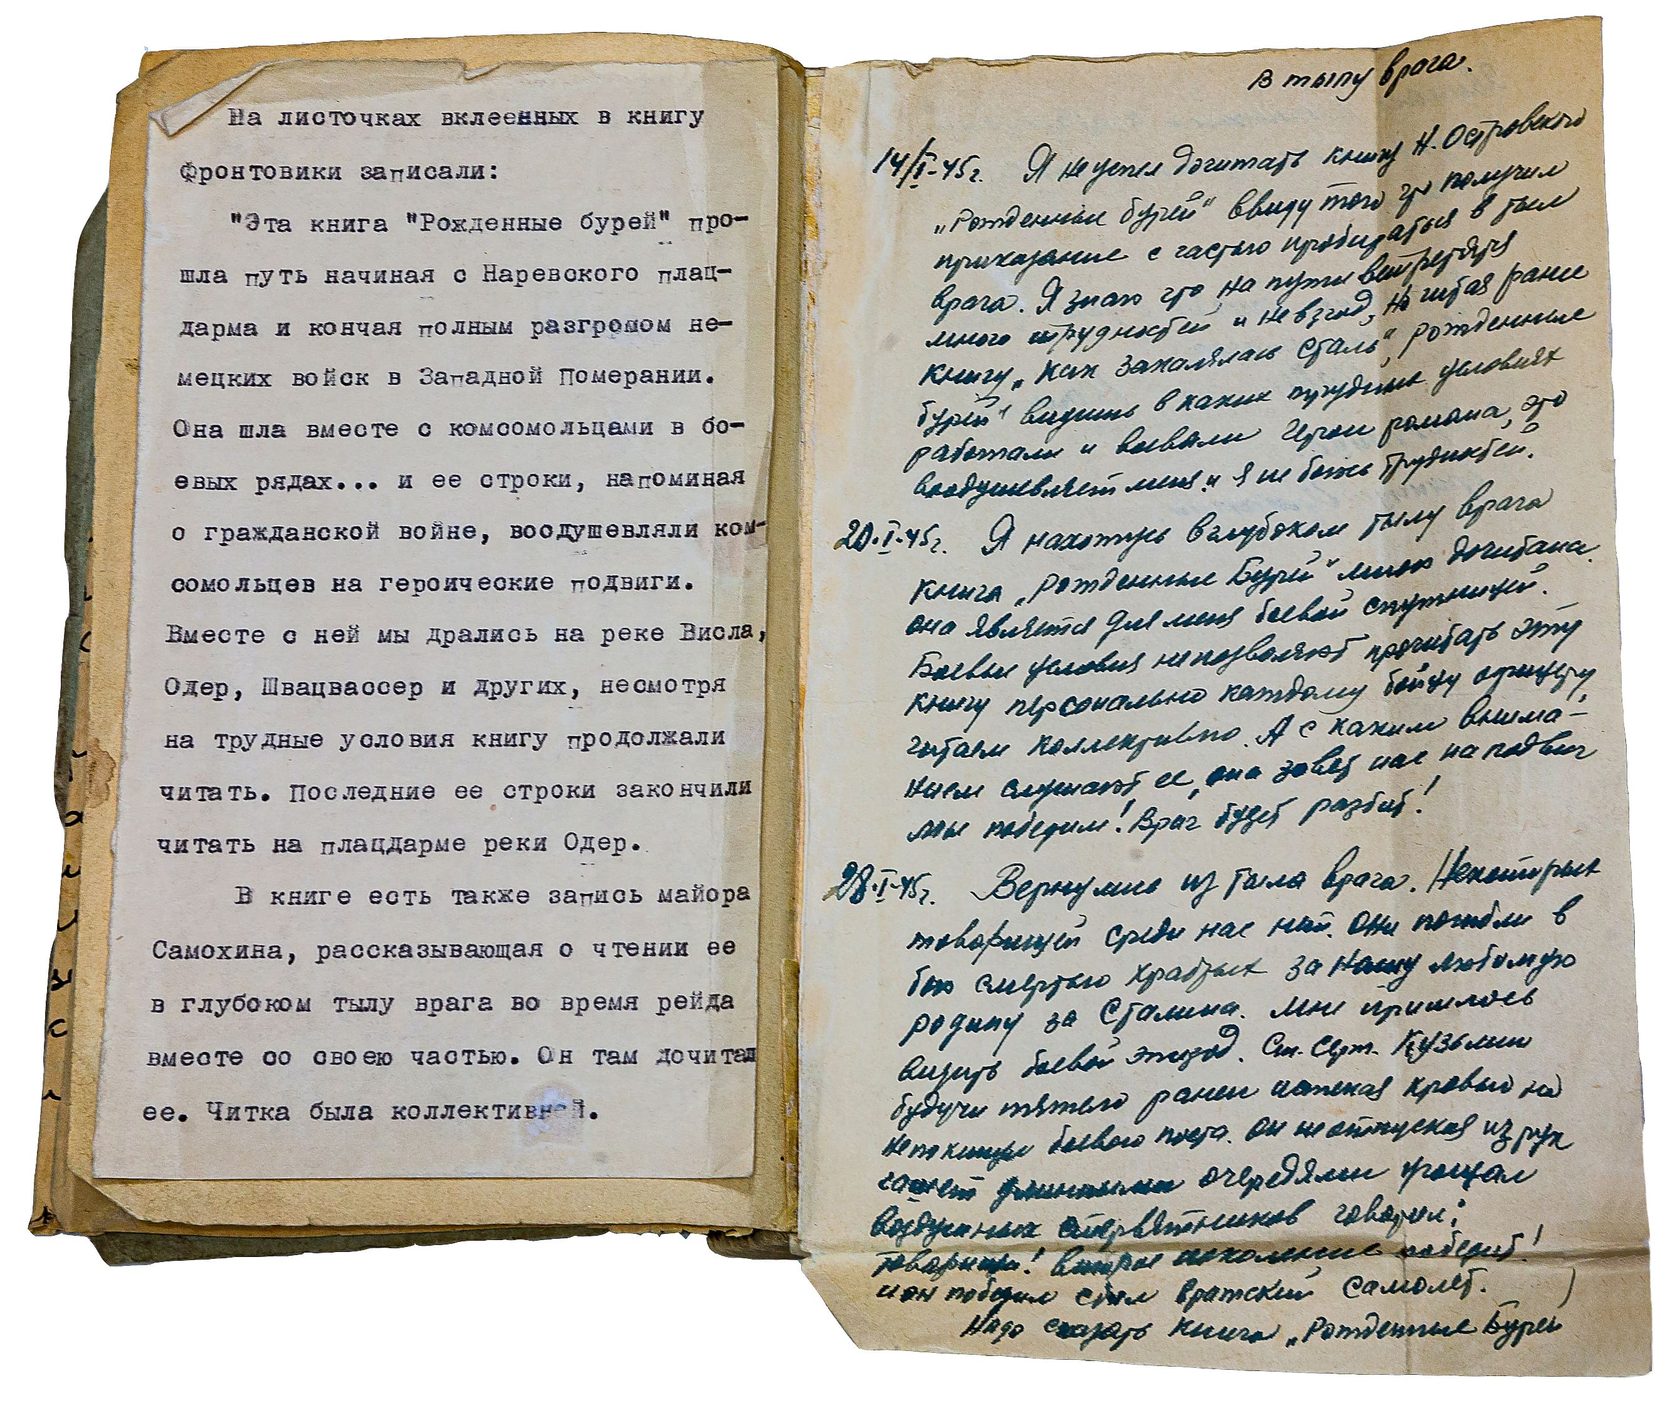 На листочках вклеенных в книгу
фронтовики записали:
"Эта книга "Рожденные бурей" про-
шла путь начиная с Наревского плац-
дарма и кончая полным разгромом не-
мецких войск в Западной Померании.
Она шла вместе с комсомольцами в бо-
евых рядах... и ее строки, напоминая
о гражданской войне, воодушевляли ком-
сомольцев на героические подвиги.
Вместе с ней мы дрались на реке Висла,
Одер, Швацвассер и других, несмотря
на трудные условия книгу продолжали
читать. Последние ее строки закончили
читать на плацдарме реки Одер.
В книге есть также запись майора
Самохина, рассказывающая о чтении ее
в глубоком тылу врага во время рейда
вместе со своею частью. Он там дочитал
ее. Читка была коллективной.
В тылу врага.
14/I-45г. Я не успел дочитать книгу Н. Островского
„Рожденные бурей" ввиду того что получил
приказание с частью пробираться в тыл
врага. Я знаю что на пути встретятся
много трудностей и невзгод, но читая ранее
книгу „Как закалялась сталь", „Рожденные
бурей" видишь в каких трудных условиях
работали и воевали герои романа, это
воодушевляет меня и я не боюсь трудностей.
20.I-45г. Я нахожусь в глубоком тылу врага
книга „Рожденные Бурей" мною дочитана.
она является для меня боевой спутницей.
Боевые условия не позволяют прочитать эту
книгу персонально каждому бойцу офицеру,
читаем коллективно. А с каким внима-
нием слушают ее, она зовет нас на подвиг
мы победим! Враг будет разбит!
28.I-45г. Вернулись из тыла врага. Некоторых
товарищей среди нас нет. Они погибли в
бою смертью храбрых за нашу любимую
родину за Сталина. Мне пришлось
видеть боевой эпизод. Ст. серж. Кузьмин
будучи тяжело ранен истекая кровью но
не покинул боевого поста. Он не отпуская из рук
длинными очередями угощал
воздушных стервятников говорил:
товарищи! второе поколение победит!
и он победил сбил вражский самолет.
Надо сказать книга „Рожденные Бурей